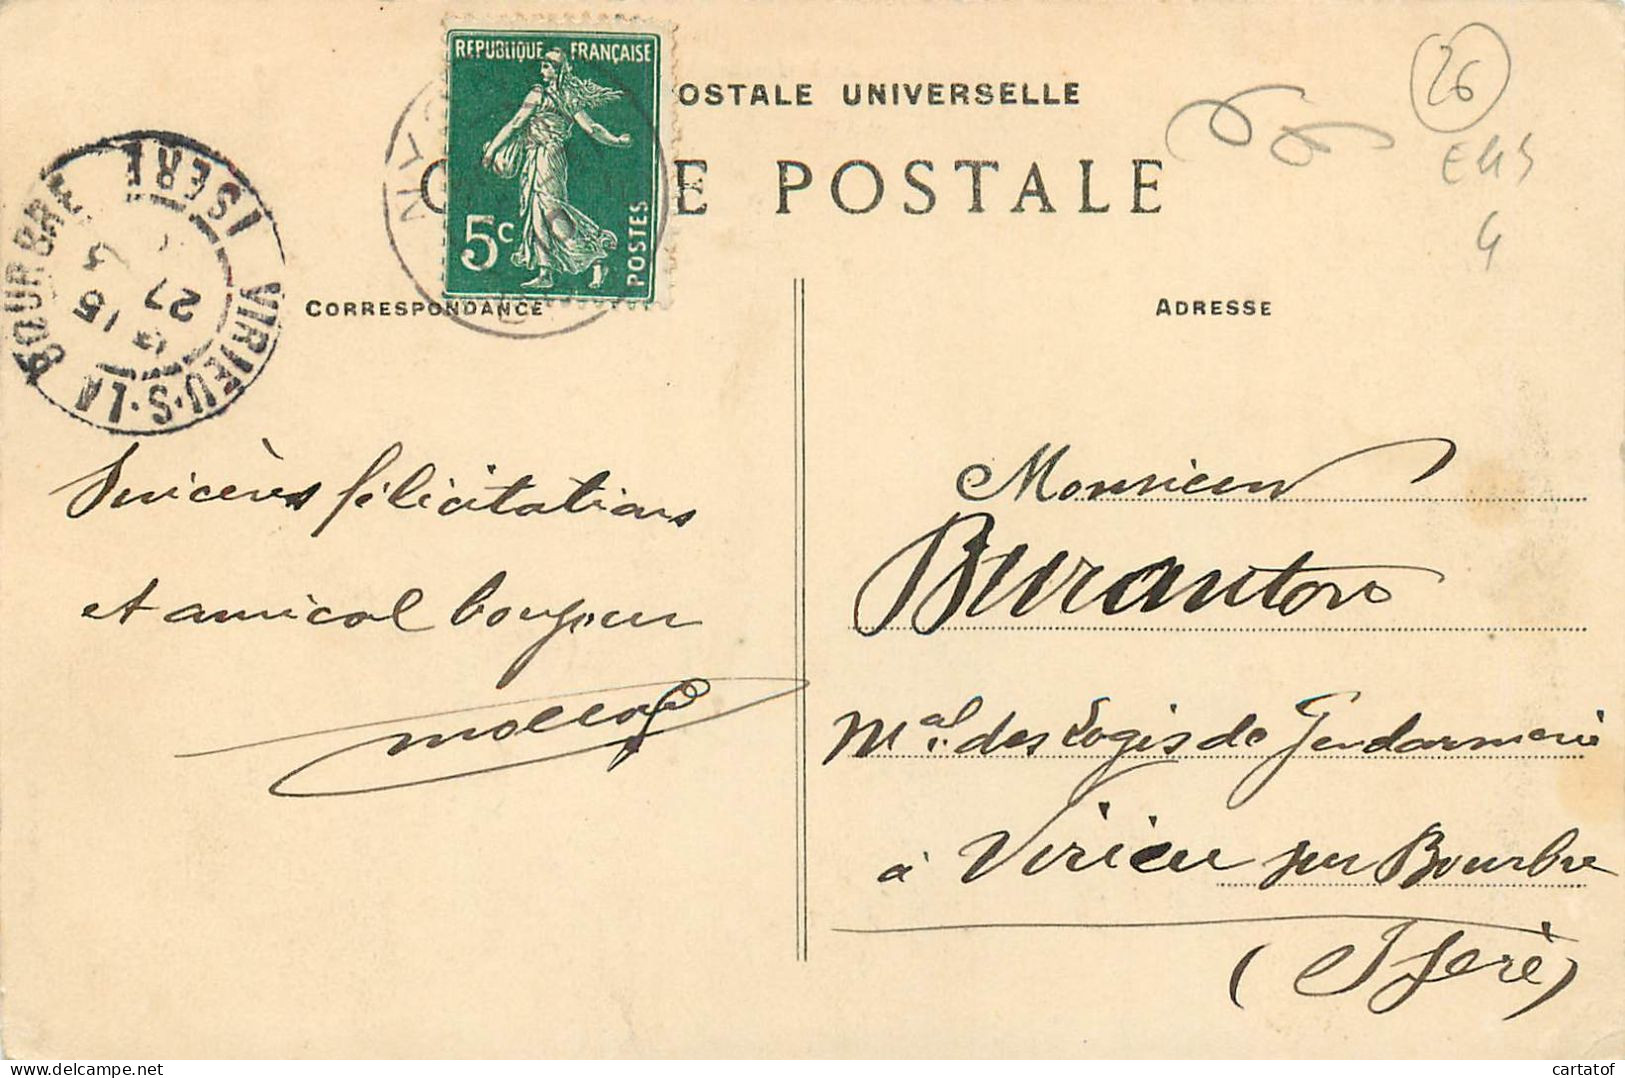 RÉPUBLIQUE FRANÇAISE
5c
POSTES
OSTALE UNIVERSELLE
C E POSTALE
26
VIRIEU-S-LA BOURBRE
ISÈRE
6 15
27
5
CORRESPONDANCE
ADRESSE
Sincères félicitations
et amical bonjour
Monsieur
Buranton
Mal. des Logis de Gendarmerie
à Virieu sur Bourbre
(Isère)
4
cartatof